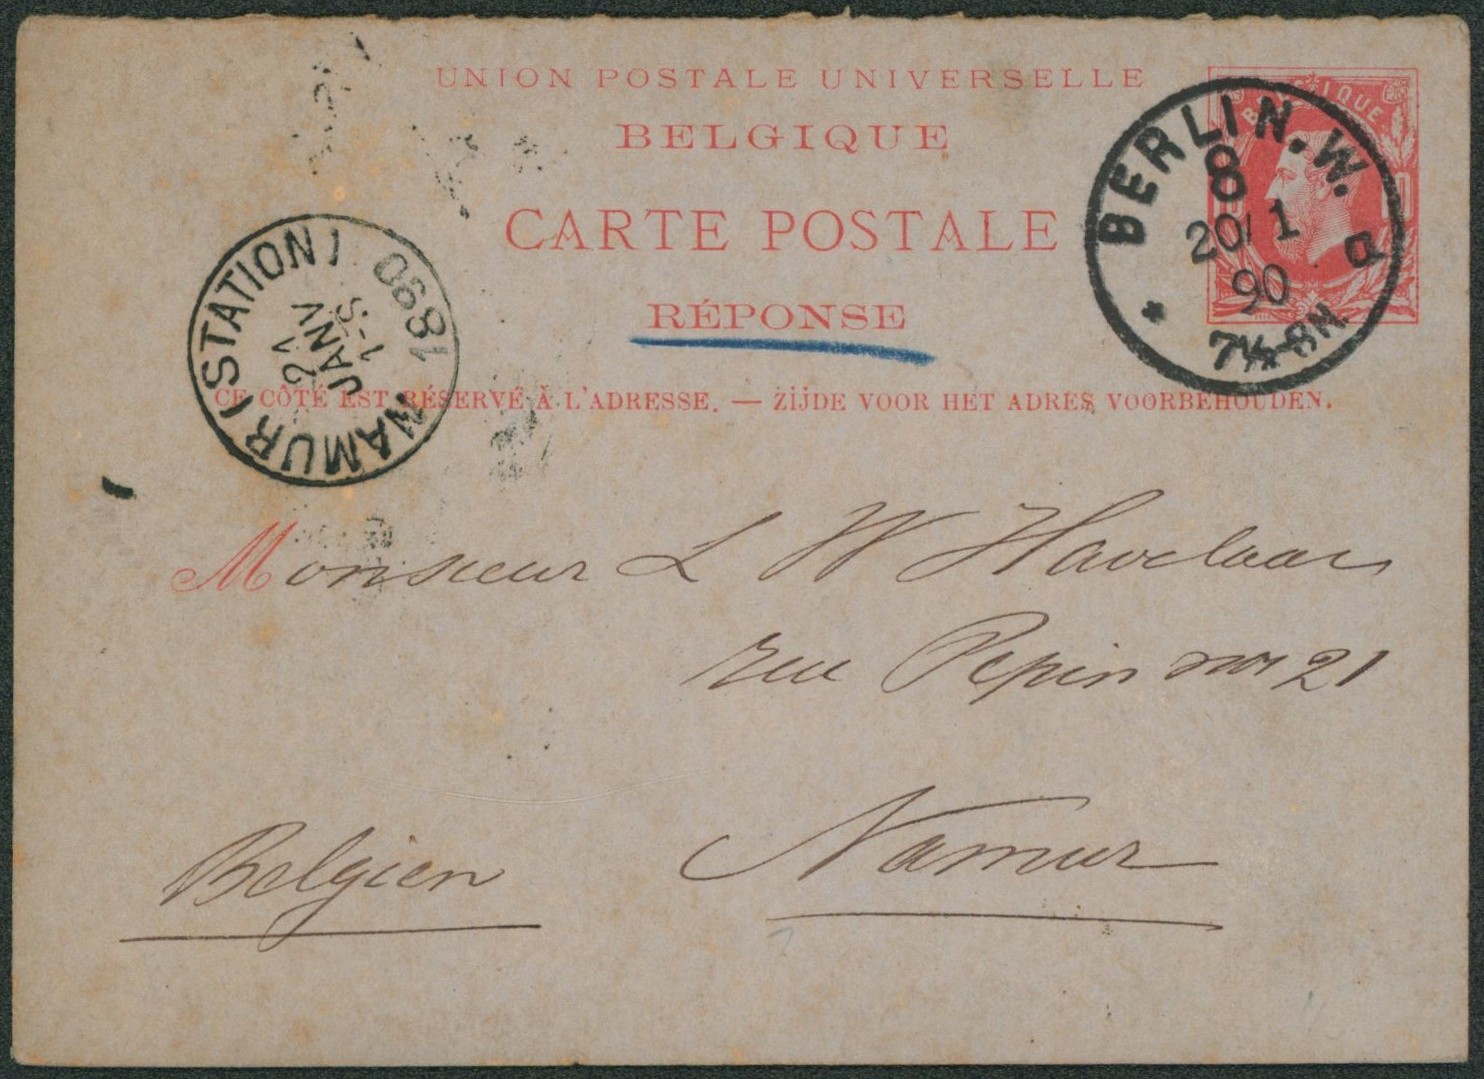 UNION POSTALE UNIVERSELLE
BELGIQUE
BELGIQUE
CARTE POSTALE
RÉPONSE
BERLIN. W.
8
20/1
90
7½-8N
NAMUR (STATION) 1890
21
JANV
1-S
CE CÔTÉ EST RÉSERVÉ À L'ADRESSE. — ZIJDE VOOR HET ADRES VOORBEHOUDEN.
Monsieur L W Havelaar
rue Pepin 21
Namur
Belgien